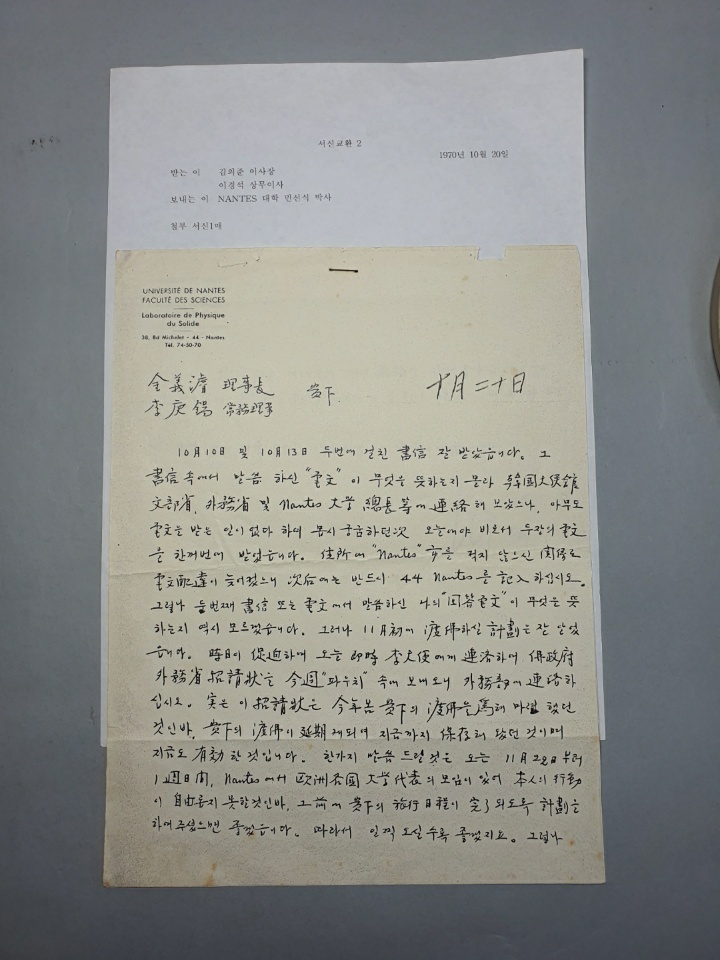 서신교환 2
1970년 10월 20일
받는 이 김의준 이사장
이경석 상무이사
보내는 이 NANTES 대학 민선식 박사
첨부 서신1매
UNIVERSITÉ DE NANTES
FACULTÉ DES SCIENCES
Laboratoire de Physique
du Solide
38, Bd Michelet - 44 - Nantes
Tél. 74-50-70
金義濬 理事長 貴下
十月二十日
李庚錫 常務理事
10月10日 및 10月13日 두번에 걸친 書信 잘 받았읍니다. 그
書信 속에서 말씀 하신 "電文"이 무엇을 뜻하는지 몰라 韓國大使館
文部省, 外務省 및 Nantes 大学 總長等에 連絡해 보았으나, 아무도
電文을 받은 일이 없다 하여 몹시 궁금하던次 오늘에야 비로서 두장의 電文
을 한꺼번에 받았읍니다. 住所에 "Nantes" 市를 적지 않으신 関係로
電文配達이 늦어졌으니 次后에는 반드시 44 Nantes를 記入하십시오.
그럴나 둘번째 書信 또는 電文에서 말씀하신 나의 "回答電文"이 무엇을 뜻
하는지 역시 모르겠읍니다. 그러나 11月初에 渡佛하실 計劃은 잘 알았
읍니다. 時日이 促迫하여 오늘 即時 李大使에게 連洛하여 佛政府
外務省 招請狀을 今週 "파우치" 속에 보내오니 外務部에 連洛하
십시오. 実은 이 招請狀은 今年봄 貴下의 渡佛을 爲해 마련했던
것인바, 貴下의 渡佛이 延期 되여 지금까지 保存해 놨던 것이며
지금도 有効한 것입니다. 한가지 말씀 드릴것은 오는 11月22日부터
1週日間, Nantes에서 欧洲各國 大学代表의 모임이 있어 本人의 行動
이 自由롭지 못할것인바, 그前에 貴下의 旅行日程이 完了되도록 計劃을
하여 주셨으면 좋겠읍니다. 따라서 일찍 오실수록 좋겠지요. 그럴나